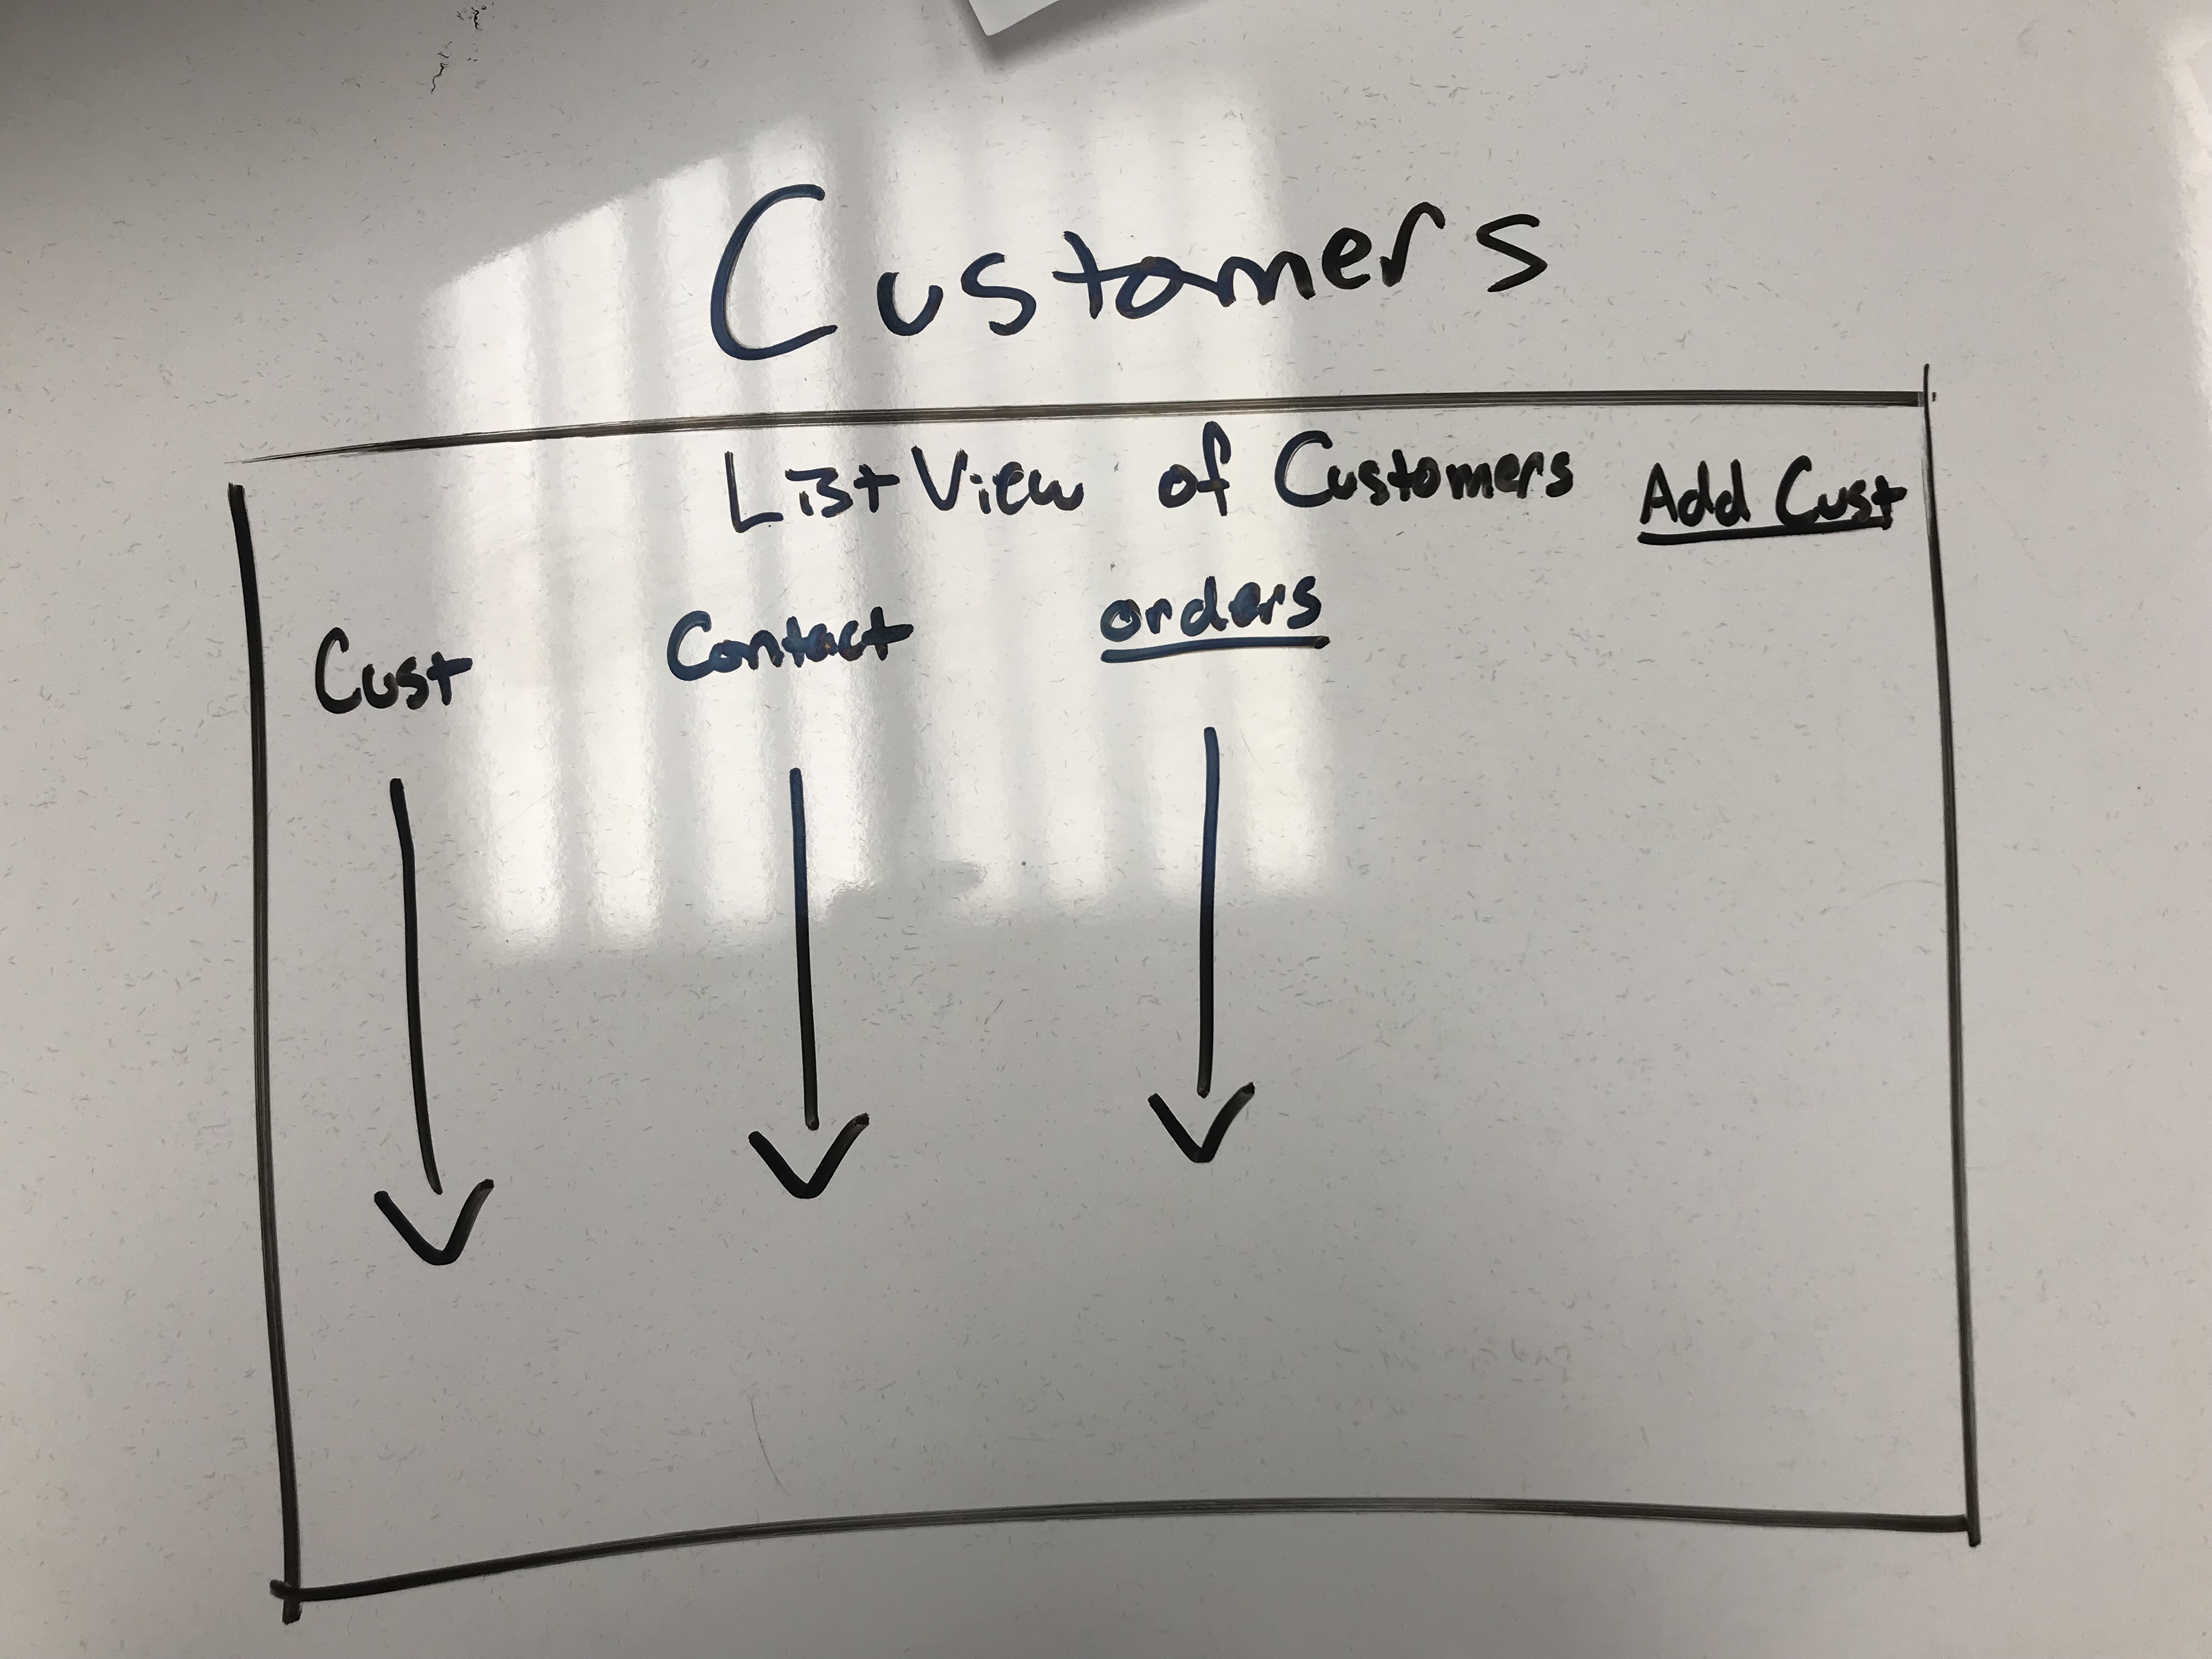 Customers
List View of Customers Add Cust
Cust Contact orders